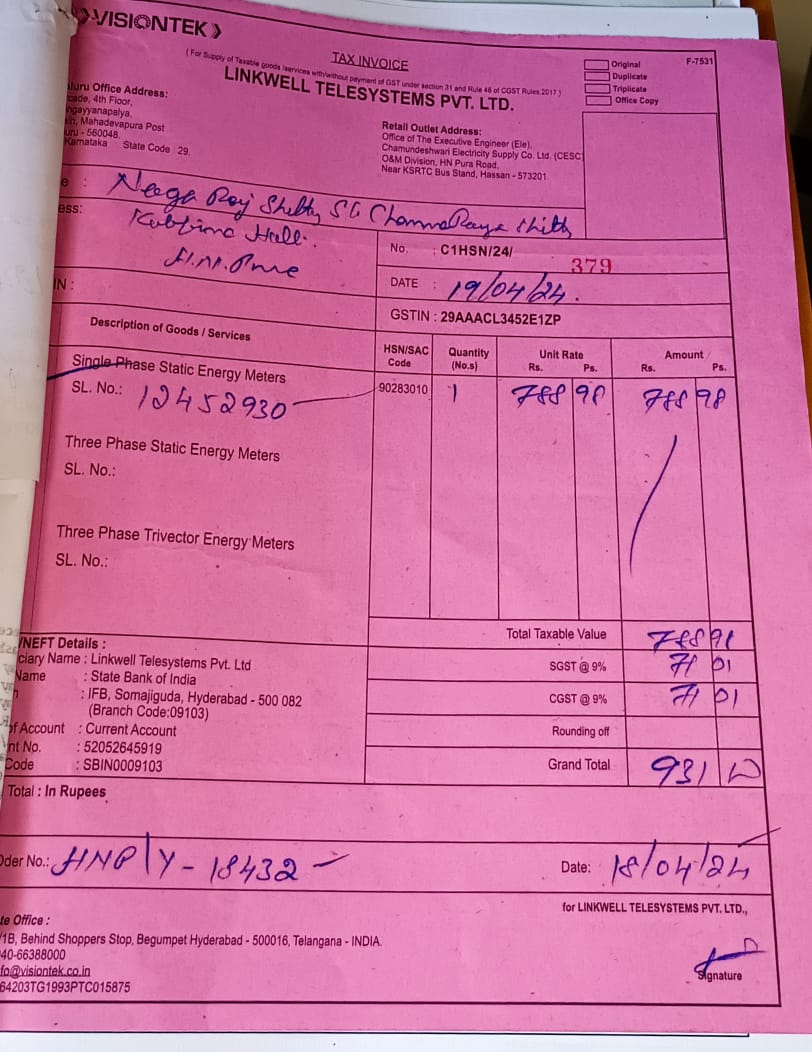 VISIONTEK
TAX INVOICE
( For Supply of Taxable goods /services with/without payment of GST under section 31 and Rule 46 of CGST Rules,2017 )
LINKWELL TELESYSTEMS PVT. LTD.
Original
Duplicate
Triplicate
Office Copy
F-7531
luru Office Address:
cade, 4th Floor,
ngayyanapalya,
in, Mahadevapura Post
uru - 560048.
Karnataka State Code 29.
Retail Outlet Address:
Office of The Executive Engineer (Ele),
Chamundeshwari Electricity Supply Co. Ltd. (CESC)
O&M Division, HN Pura Road,
Near KSRTC Bus Stand, Hassan - 573201
e : Naga Raj Shetty
ess:
No. : C1HSN/24/ 379
DATE : 19/04/24.
IN :
GSTIN : 29AAACL3452E1ZP
Description of Goods / Services
HSN/SAC Code
Quantity (No.s)
Unit Rate Rs. Ps.
Amount Rs. Ps.
Single Phase Static Energy Meters
SL. No.: 12452930
90283010 1 788 98 788 98
Three Phase Static Energy Meters
SL. No.:
Three Phase Trivector Energy Meters
SL. No.:
Total Taxable Value 788 98
/NEFT Details :
ciary Name : Linkwell Telesystems Pvt. Ltd
SGST @ 9% 71 01
Name : State Bank of India
: IFB, Somajiguda, Hyderabad - 500 082
CGST @ 9% 71 01
(Branch Code:09103)
of Account : Current Account
Rounding off
nt No. : 52052645919
Code : SBIN0009103
Grand Total 931 00
Total : In Rupees
Oder No.: HNP/Y-18432
Date: 18/04/24
for LINKWELL TELESYSTEMS PVT. LTD.,
te Office :
/1B, Behind Shoppers Stop, Begumpet Hyderabad - 500016, Telangana - INDIA.
40-66388000
fo@visiontek.co.in
64203TG1993PTC015875
Signature